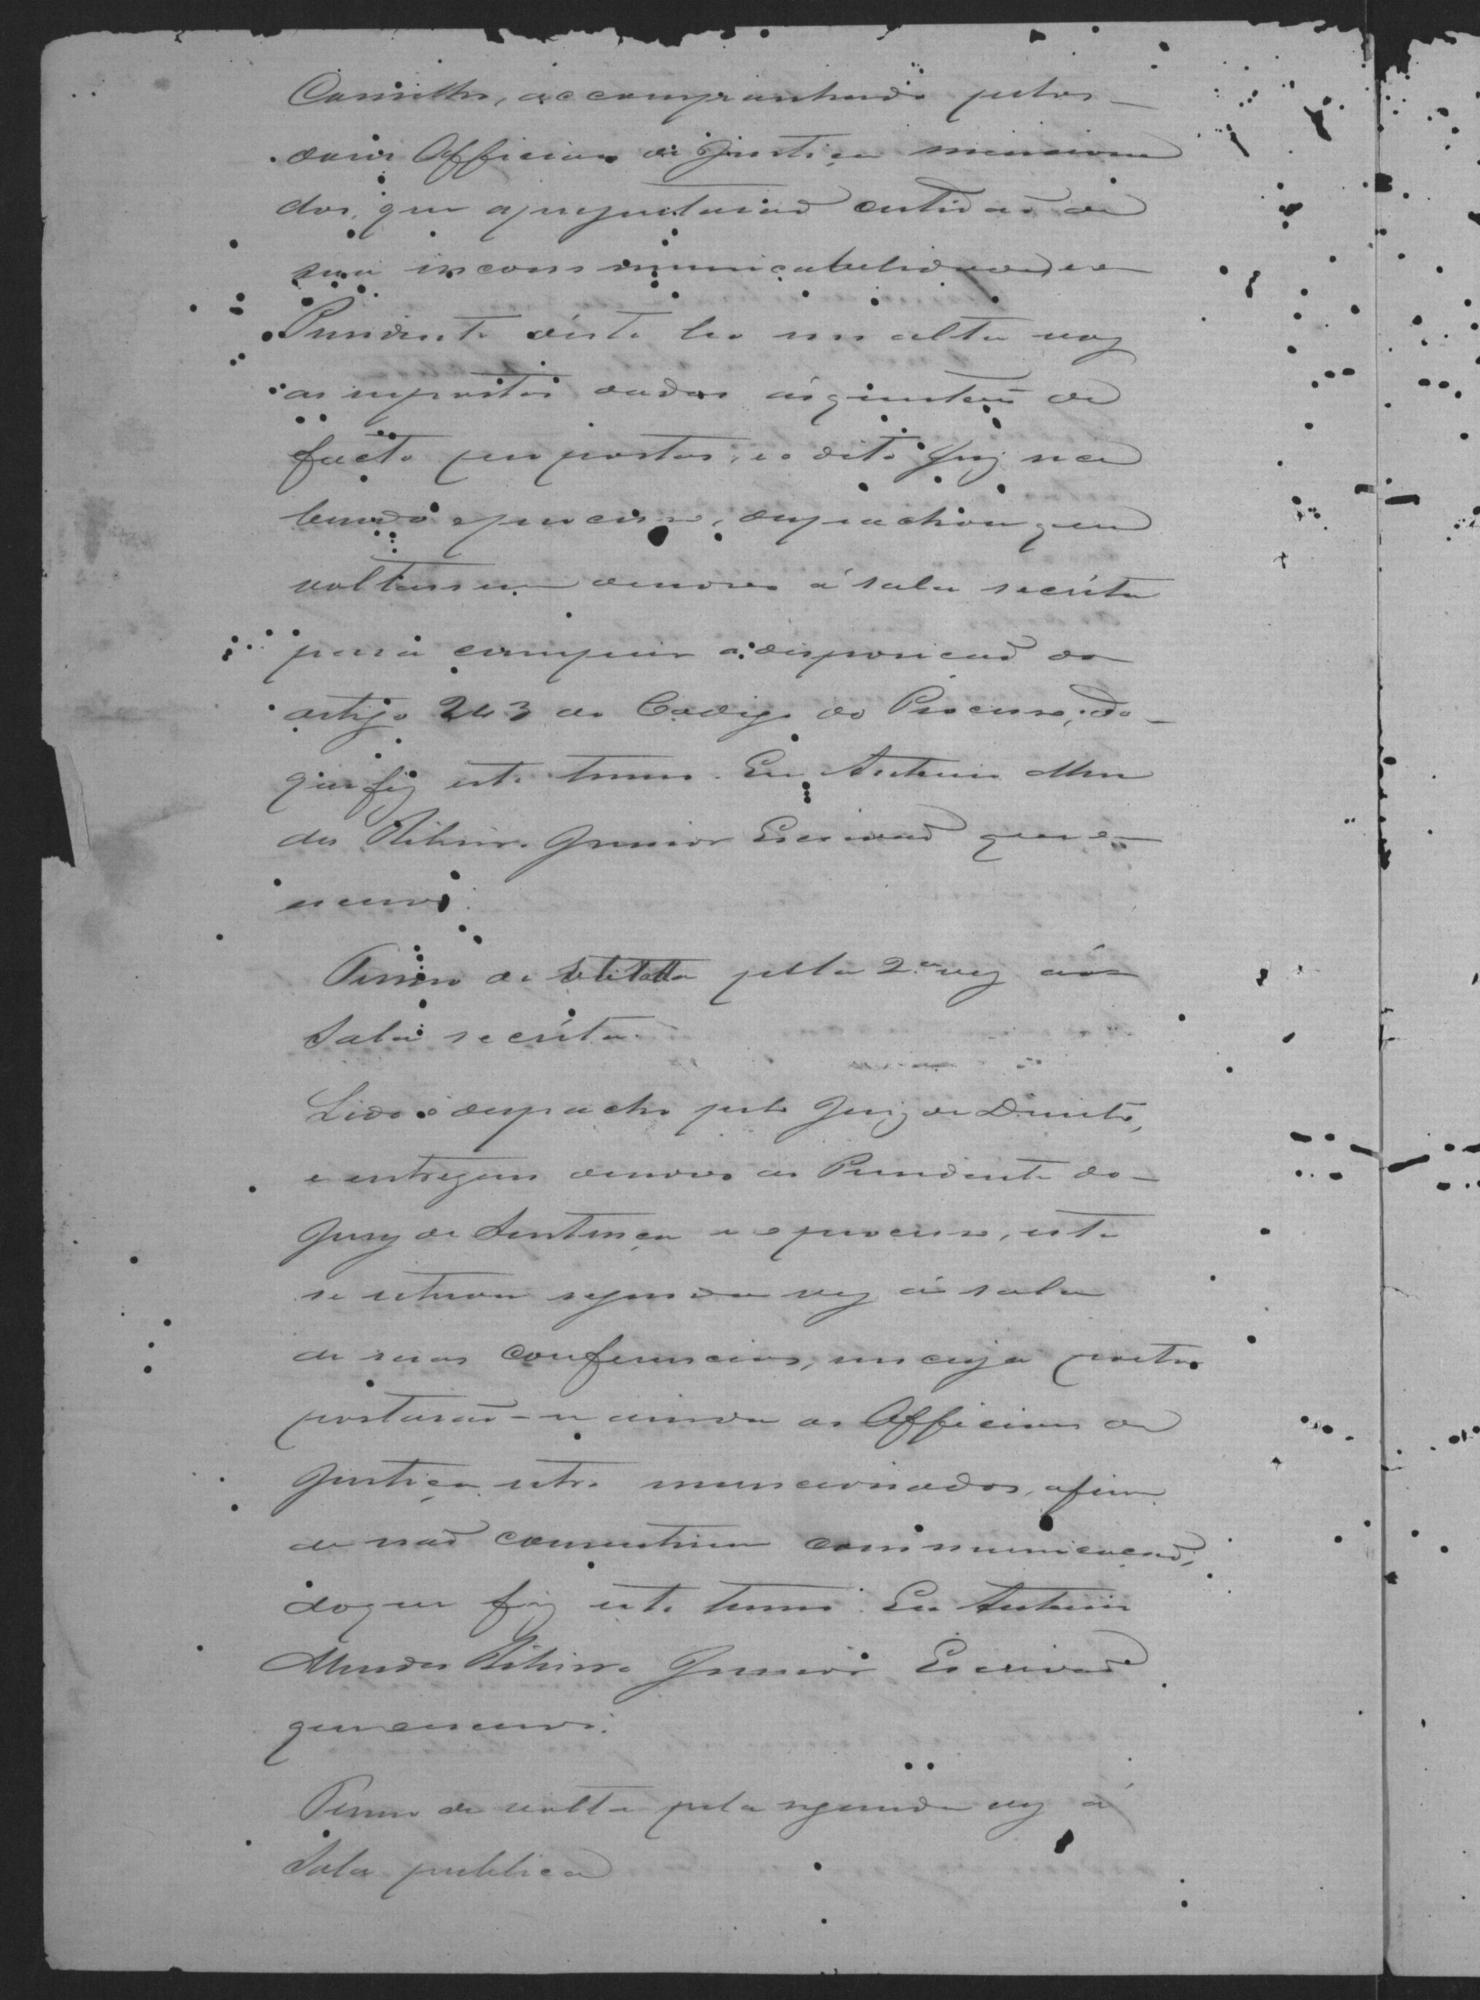 Conselho, accompanhado pelos
dous Officiaes de Justiça menciona
dos, que apresentarão certidão de
sua incommunicabilidade, e o
Presidente deste leo em alta voz
as respostas dadas ás questões de
facto propostas, e o dito Juiz rece
bendo o processo, despachou que
voltassem de novo á sala secréta
para cumprir a disposicão do
artigo 243 do Codigo do Processo, do
que fiz este termo. Eu Antonio Men
des Ribeiro Junior Escrivão que o
escrevi.
Termo de volta pella 2.ª vez á
Sala secréta.
Lido o despacho pelo Juiz de Direito,
e entregue de novo ao Presidente do
Jury de Sentença o processo, este
se retirou segunda vez á sala
de suas conferencias, em cuja porta
postarão-se ainda os Officiaes de
Justiça retro mencionados, afim
de não consentirem communicacão,
do que fiz este termo. Eu Antonio
Mendes Ribeiro Junior Escrivão
que escrevi.
Termo de volta pela segunda vez á
Sala publica